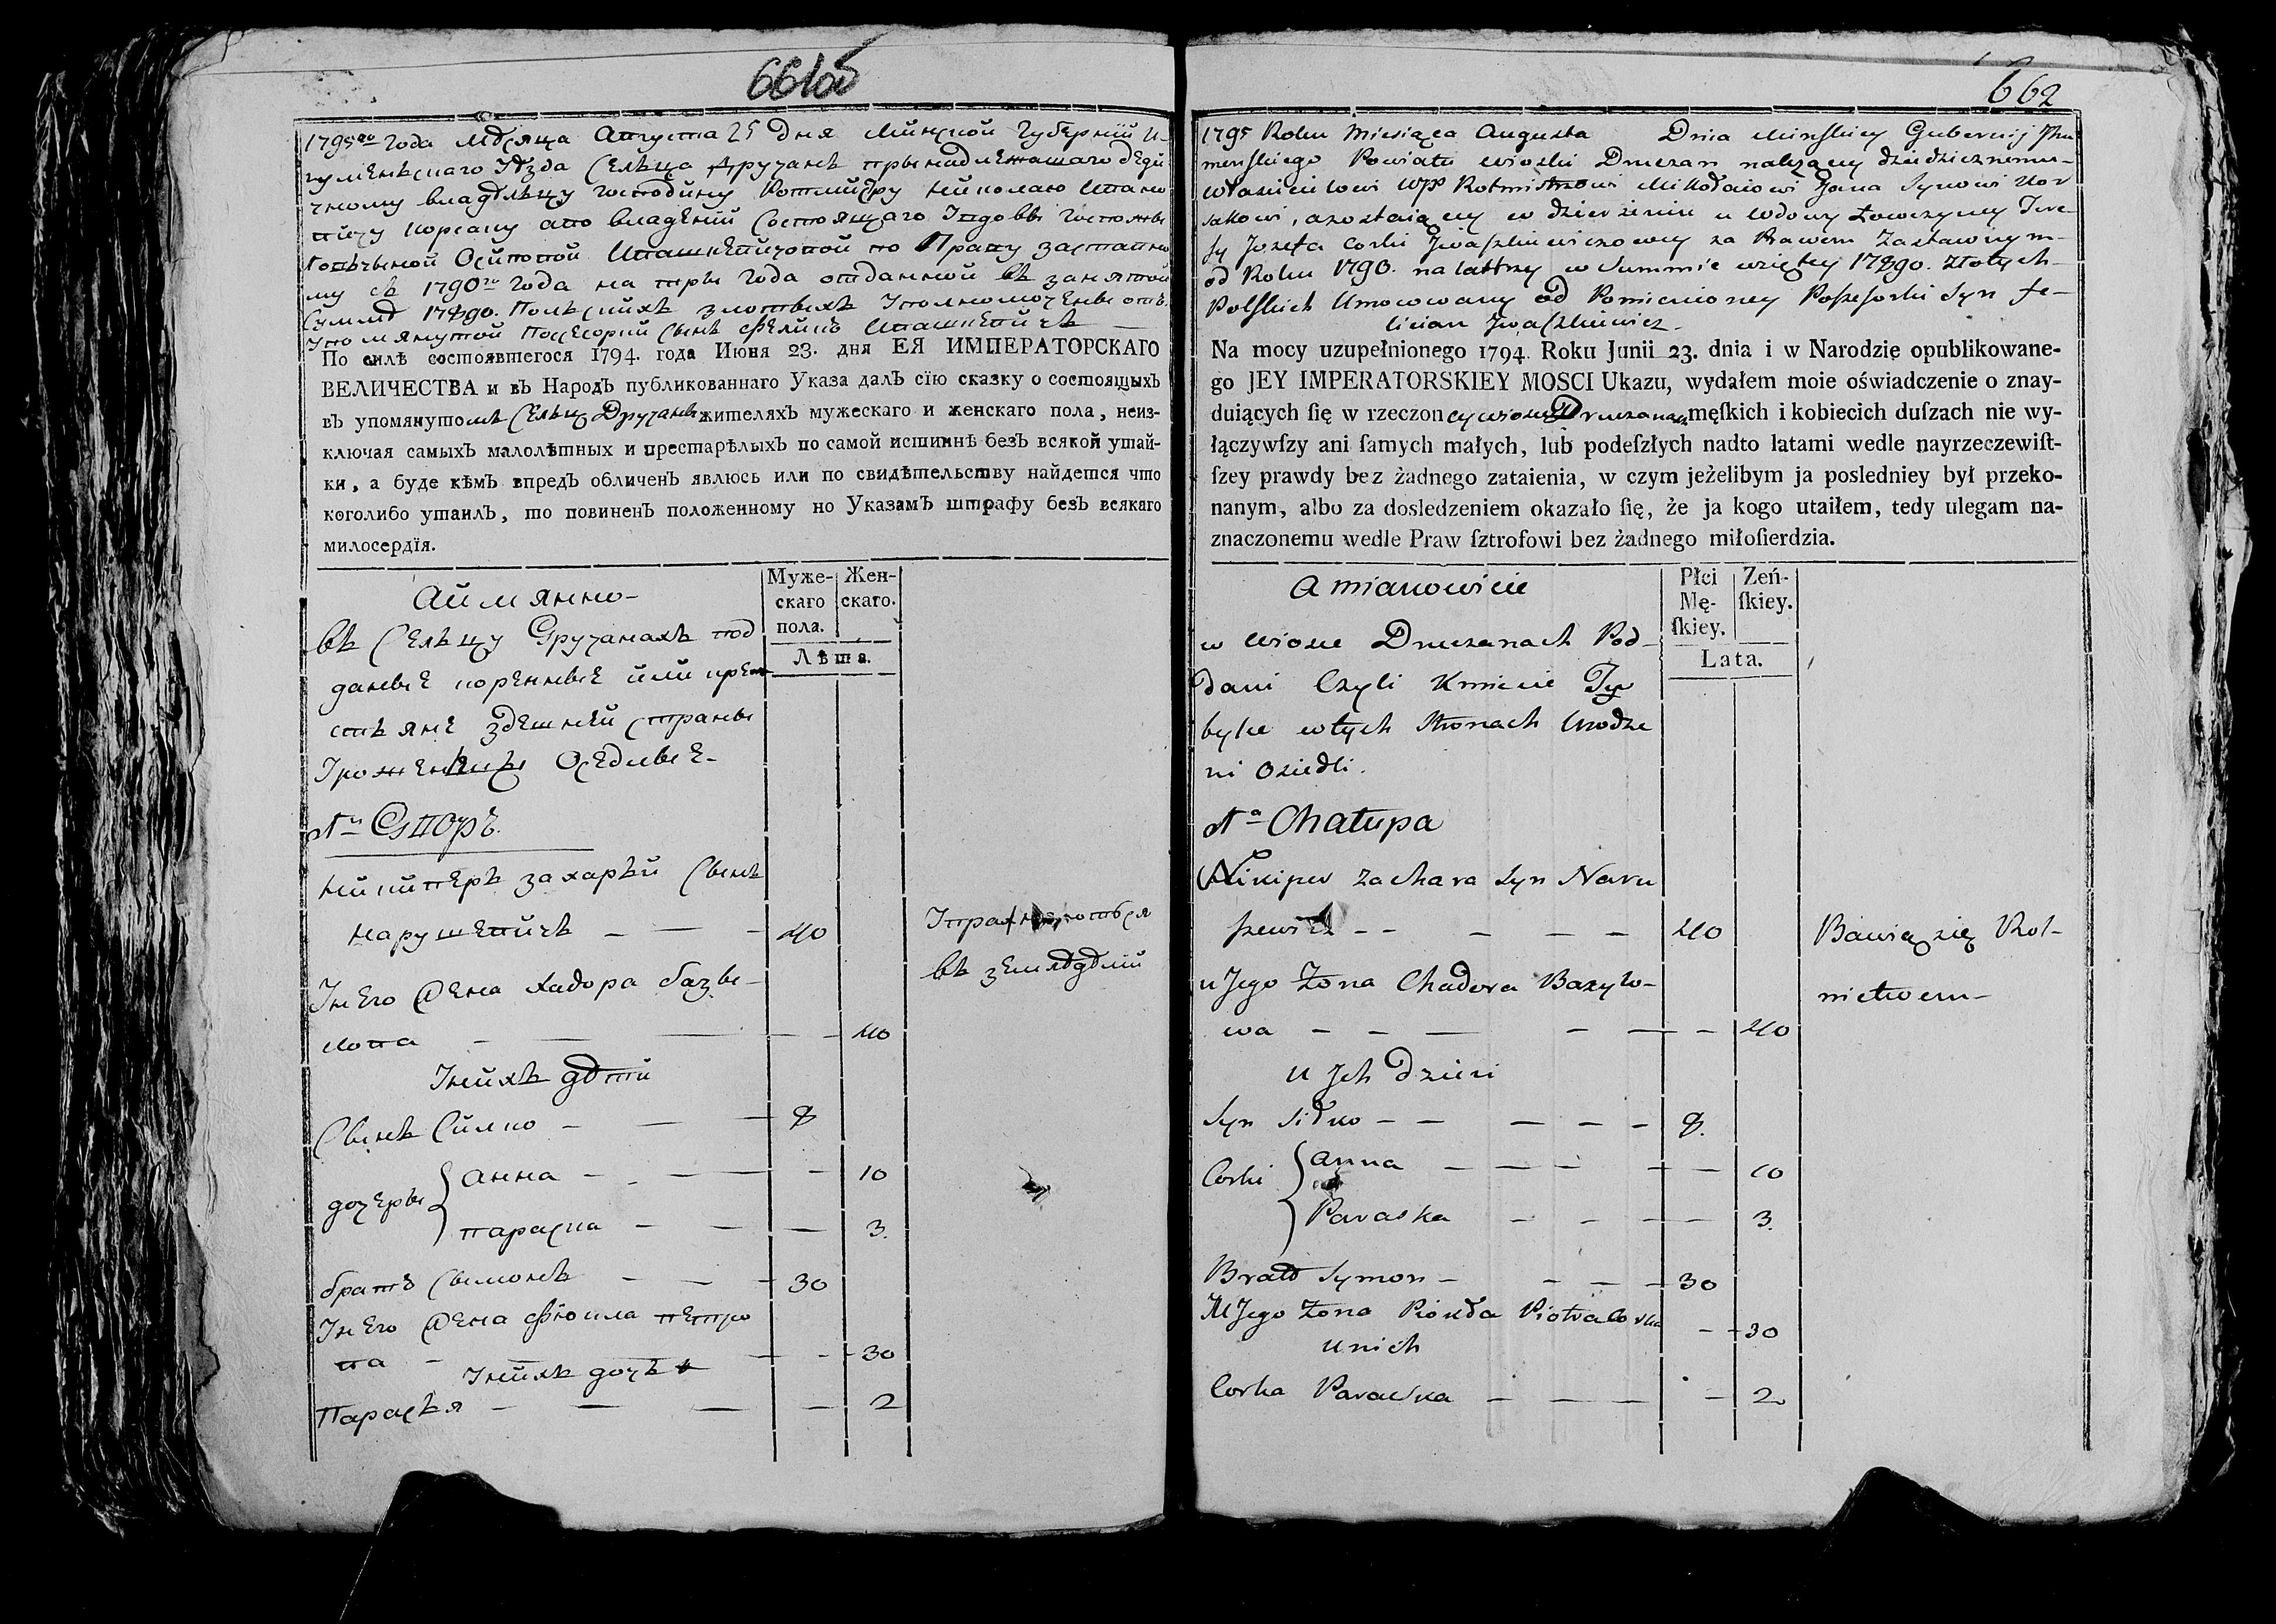 661об
1795го Года Мѣсяца Августа 25 дня Минской Губернїи И-
гуменскаго Уѣзда Сельца Дручанъ принадлежащаго дѣди
чному владѣльцу Господину Ротмистру Николаю
Корсаку а во владѣнїи состоящаго У вдовы Госпожи
Осиповой по Праву заставно
му съ 1790го Года на три года отданной въ занятой
Суммѣ 17890. Польскихъ злотыхъ Уполномоченный отъ
упомянутой Поссесорки сынъ Фелиць Ивашкевичъ
По силѣ состоявшегося 1794. года Июня 23. дня ЕЯ ИМПЕРАТОРСКАГО
ВЕЛИЧЕСТВА и въ Народъ публикованнаго Указа далъ сїю сказку о состоящыхъ
въ упомянутомъ Сельцѣ Дручанъ жителяхъ мужескаго и женскаго пола, неиз-
ключая самыхъ малолѣтныхъ и престарѣлыхъ по самой истиннѣ безъ всякой утай-
ки, а буде кѣмъ впредъ обличенъ явлюсь или по свидѣтельству найдется что
коголибо утаилъ, то повиненъ положенному по Указамъ штрафу безъ всякаго
милосердїя.
А именно-
Муже-
скаго
пола.
Жен-
скаго.
Лѣта.
въ Сельцу Дручанахъ под
даные коренные или кре
стьяне здешней страны
Уроженцы Оседлые-
№ 1й Дворъ.
Никиперъ Захарьи сынъ
Нарушевичъ - - - 40
Упражняются
въ земледѣлїи
У него жена Хадора Базы-
лова - - - 40
У нихъ дѣти
Сынъ Силко - - 8
дочери
Анна - - - 10
Параска - - - 3.
братъ Сымонъ - - 30
У него жена Фіокла Петро
ва - - 30
У нихъ дочь
Парасья - - - 2
662
1795 Roku Miesiąca Augusta Dnia Minskiey Gubernij Jhu
menskiego Powiatu wioski Druczan należącey dziedzicznemu-
własicielowi WJP Rotmistrzowi Mikołaiowi Jana Synowi Kor
sakowi, a zostaiącey w dzierżeniu u wdowy Łowczyney Tere-
sy Jozefa corki Jwaszkiewiczowey za Prawem Zastawnym-
od Roku 1790. na lat trzy w Summie wziętey 17890. Złotych-
Polskich Umocowany od Pomienioney Possesorki Syn Fe-
lician Jwaszkiewicz-
Na mocy uzupełnionego 1794. Roku Junii 23. dnia i w Narodzie opublikowane-
go JEY IMPERATORSKIEY MOSCI Ukazu, wydałem moie oświadczenie o znay-
duiących ſię w rzeczoney wiosce Druczanach męſkich i kobiecich duſzach nie wy-
łączywſzy ani ſamych małych, lub podeſzłych nadto latami wedle nayrzeczewiſt-
ſzey prawdy bez żadnego zataienia, w czym jeżelibym ja posledniey był przeko-
nanym, albo za dosledzeniem okazało ſię, że ja kogo utaiłem, tedy ulegam na-
znaczonemu wedle Praw ſztrofowi bez żadnego miłoſierdzia.
A mianowicie
Płci
Mę-
ſkiey.
Zeń-
ſkiey.
Lata.
w wiosce Druczanach Pod-
dani Czyli Kmiecie Tu
bylce w tych Stronach Urodze
ni Osiedli.
№ 1a Chałupa
Nikiper Zachara Syn Naru
szewicz - - - - - 40
Bawią się Rol-
nictwem-
u Jego Żona Chadora Bazylo-
wa - - - - - - 40
u Jch dzieci
Syn Siłko - - - - - 8.
Corki
Anna - - - - - 10
Paraska - - - - - 3.
Brat Symon - - - - 30
U Jego Żona Piokła Piotra Corka - - 30
u nich
Corka Paraska - - - - 2